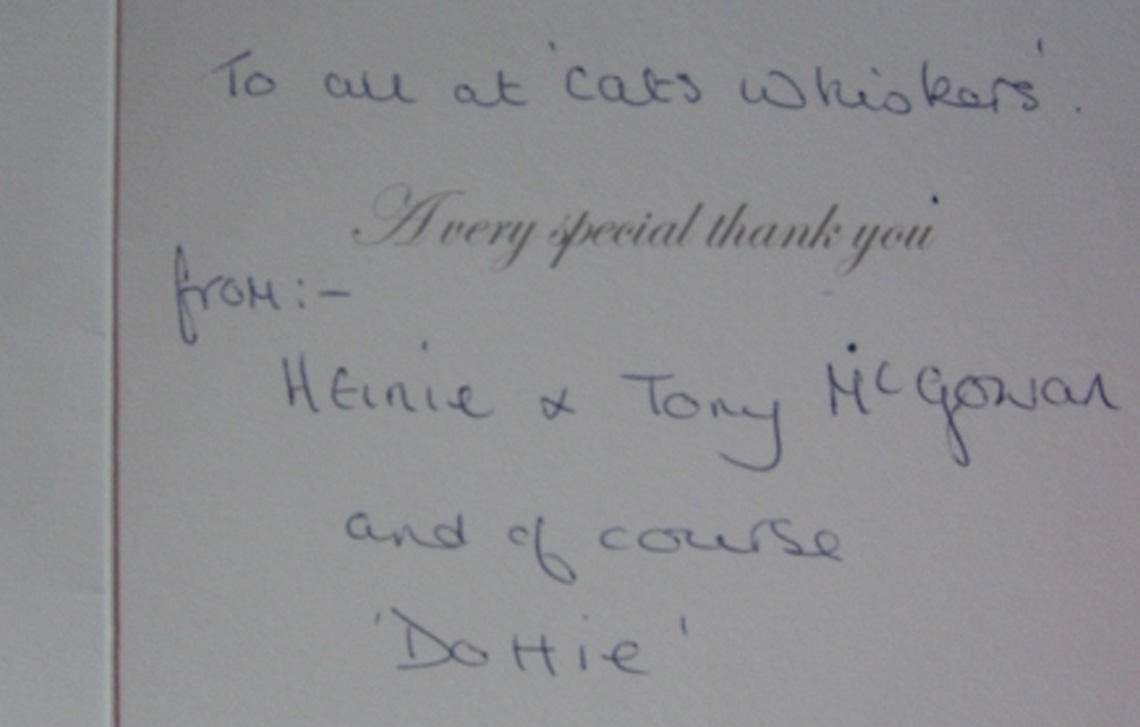 To all at 'Cats Whiskers'.
A very special thank you
from:-
Heinie & Tony McGowan
and of course
'Dottie'